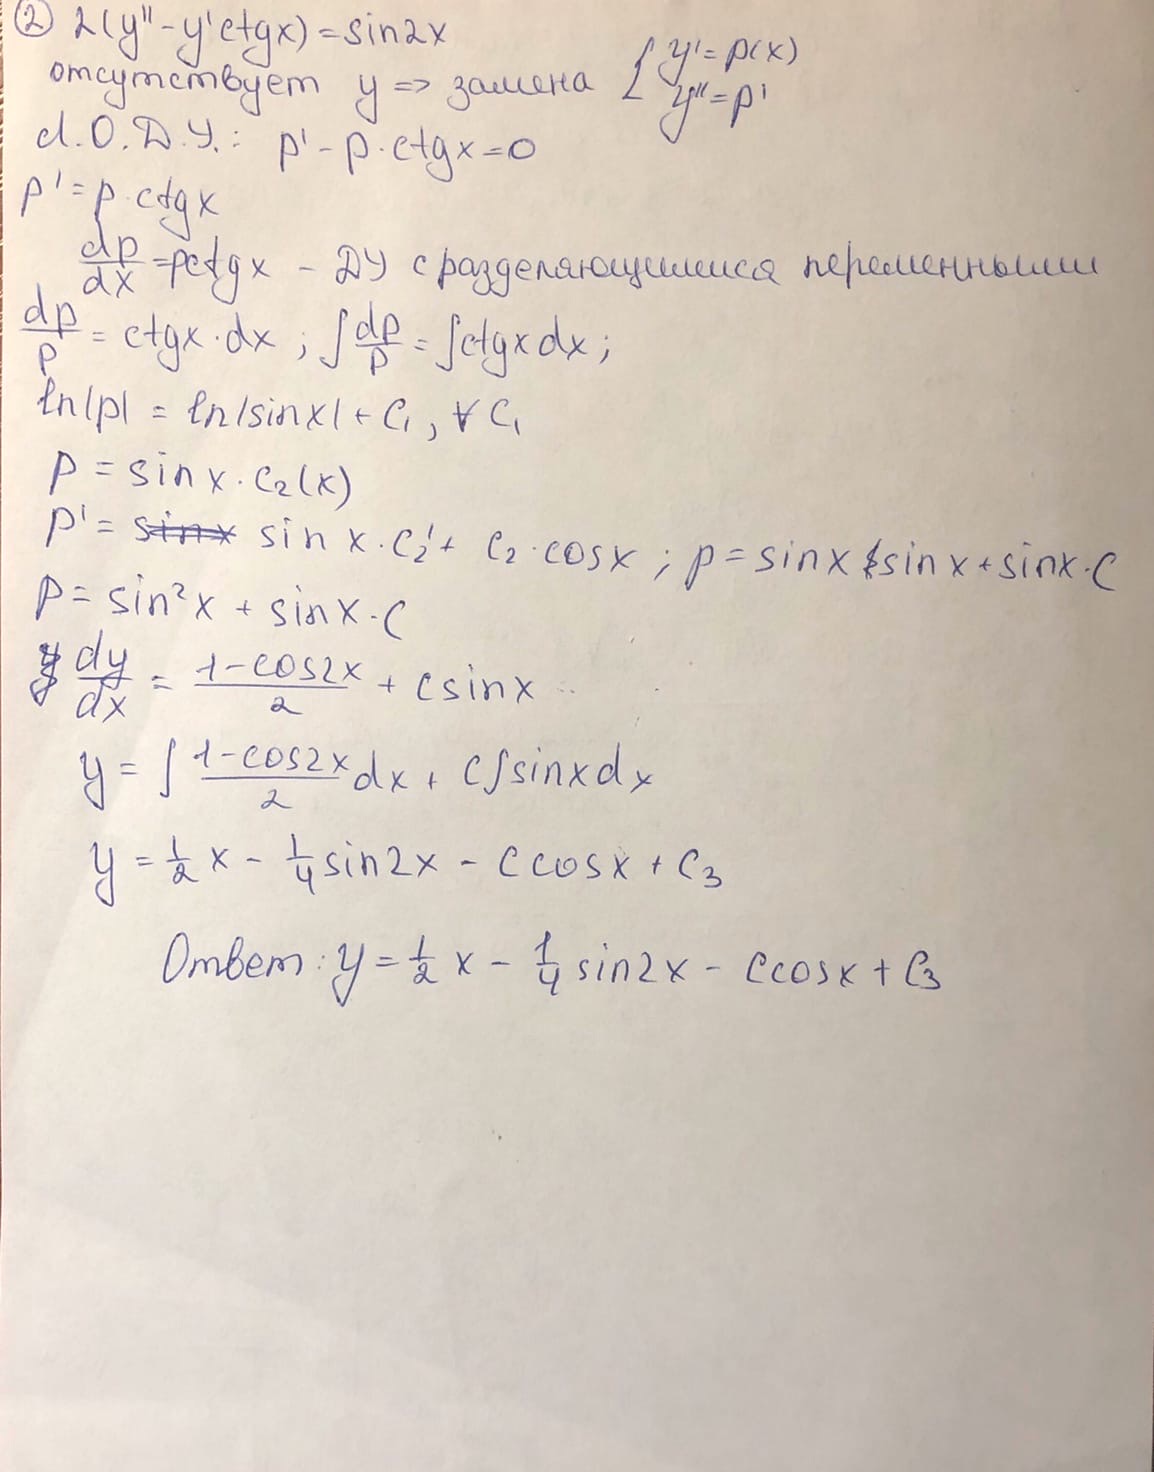 ② 2(y'' - y'ctgx) = sin2x
отсутствует y => замена { y' = p(x)
y'' = p'
л.О.Д.У.: p' - p·ctgx = 0
p' = p·ctgx
dp/dx = pctgx - ДУ с разделяющимися переменными
dp/p = ctgx·dx ; ∫dp/p = ∫ctgxdx ;
ln|p| = ln|sinx| + C₁, ∀ C₁
p = sin x·C₂(x)
p' = sin x·C₂' + C₂·cosx ; p = sinx sinx + sinx·C
p = sin²x + sinx·C
dy/dx = (1-cos2x)/2 + Csinx
y = ∫ (1-cos2x)/2 dx + C∫sinxdx
y = 1/2 x - 1/4 sin2x - Ccosx + C₃
Ответ: y = 1/2 x - 1/4 sin2x - Ccosx + C₃